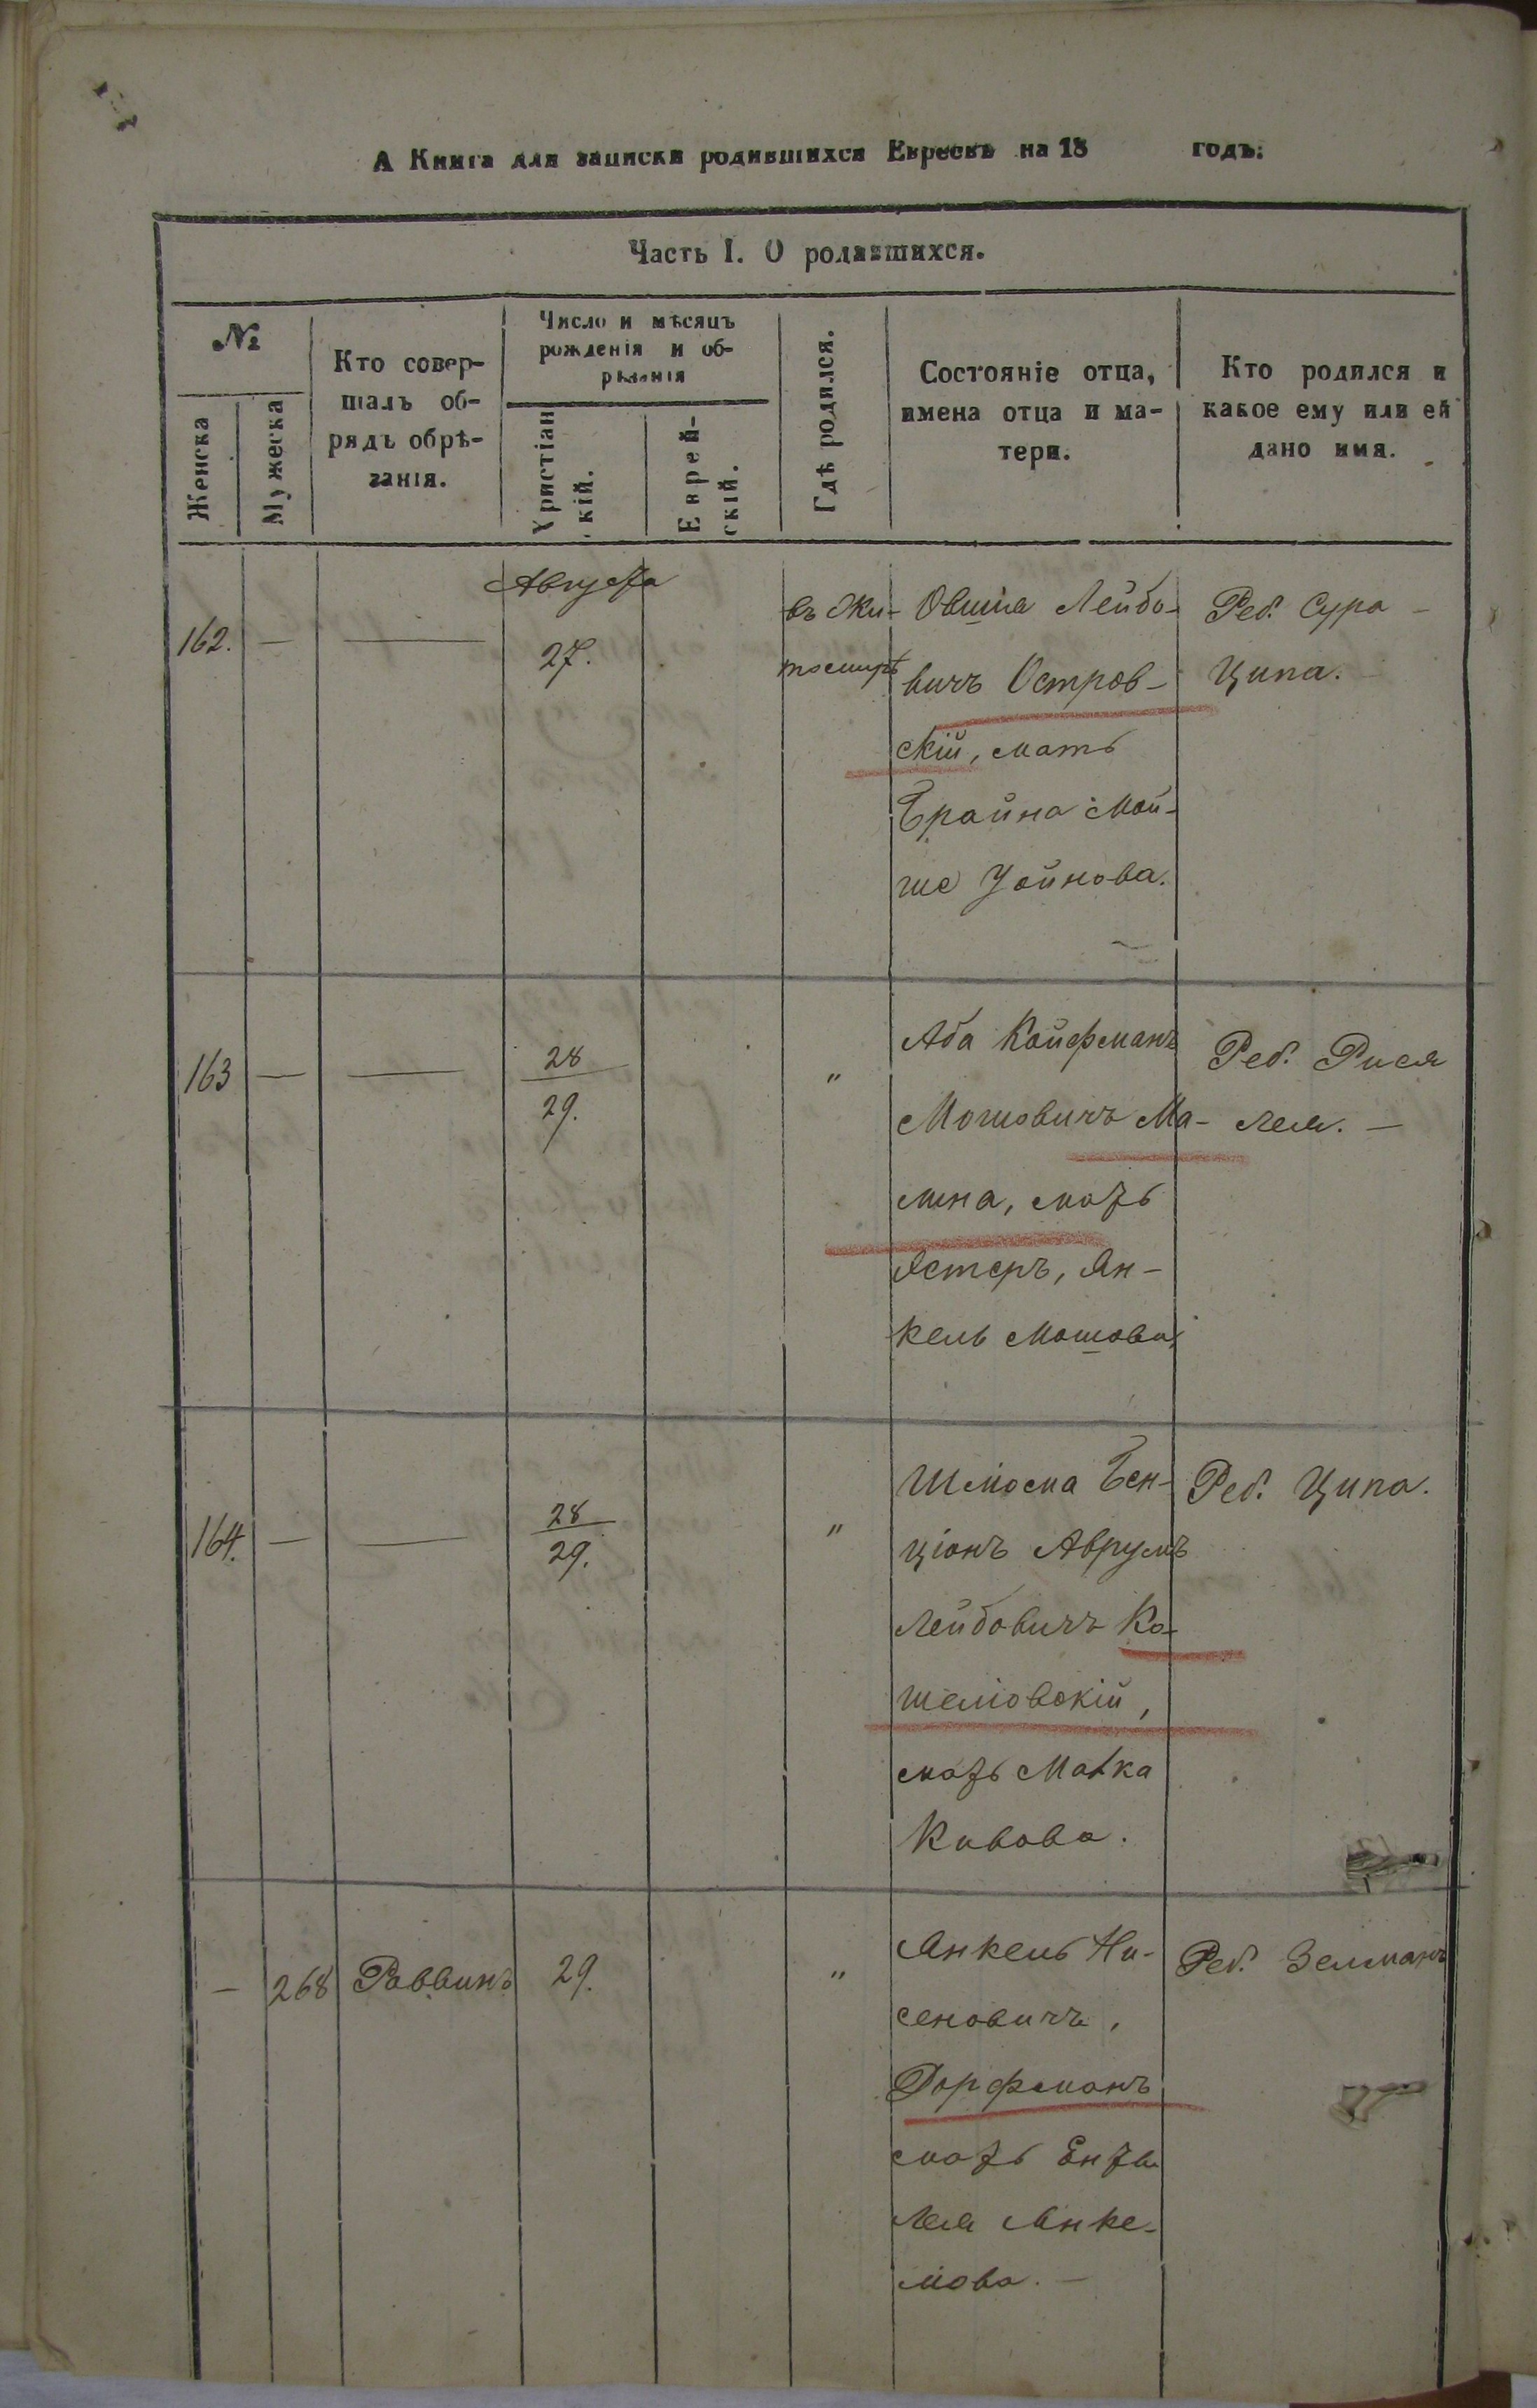 А Книга для записки родившихся Евреевъ на 18 годъ.
Часть I. О родившихся.
№
Женска
Мужеска
Кто совер-
шалъ об-
рядъ обрѣ-
занія.
Число и мѣсяцъ
рожденія и об-
рѣзанія
Христіан
кій.
Еврей-
скій.
Гдѣ родился.
Состояніе отца,
имена отца и ма-
тери.
Кто родился и
какое ему или ей
дано имя.
Августа
162.
—
—
27.
въ Жи-
томирѣ
Овшіа Лейбо-
вичъ Остров-
скій, мать
Брайна Мой-
ше Уойнова.
Реб. Сура -
Ципа.
163
—
—
28
29.
"
Аба Койфманъ
Мошовичъ Ма-
лина, мать
Естеръ, Ян-
кель Мошова,
Реб. Рися
Лея. —
164.
—
—
28
29.
"
Шлюма Бен-
ціонъ Аврумъ
Лейбовичъ Ко-
шеліовскій,
мать Матка
Кивова.
Реб. Ципа.
—
268
Раввинъ
29.
"
Янкель Ни-
сеновичъ,
Дорфманъ
мать Ента
Лея Янке-
лова. —
Реб. Зелманъ